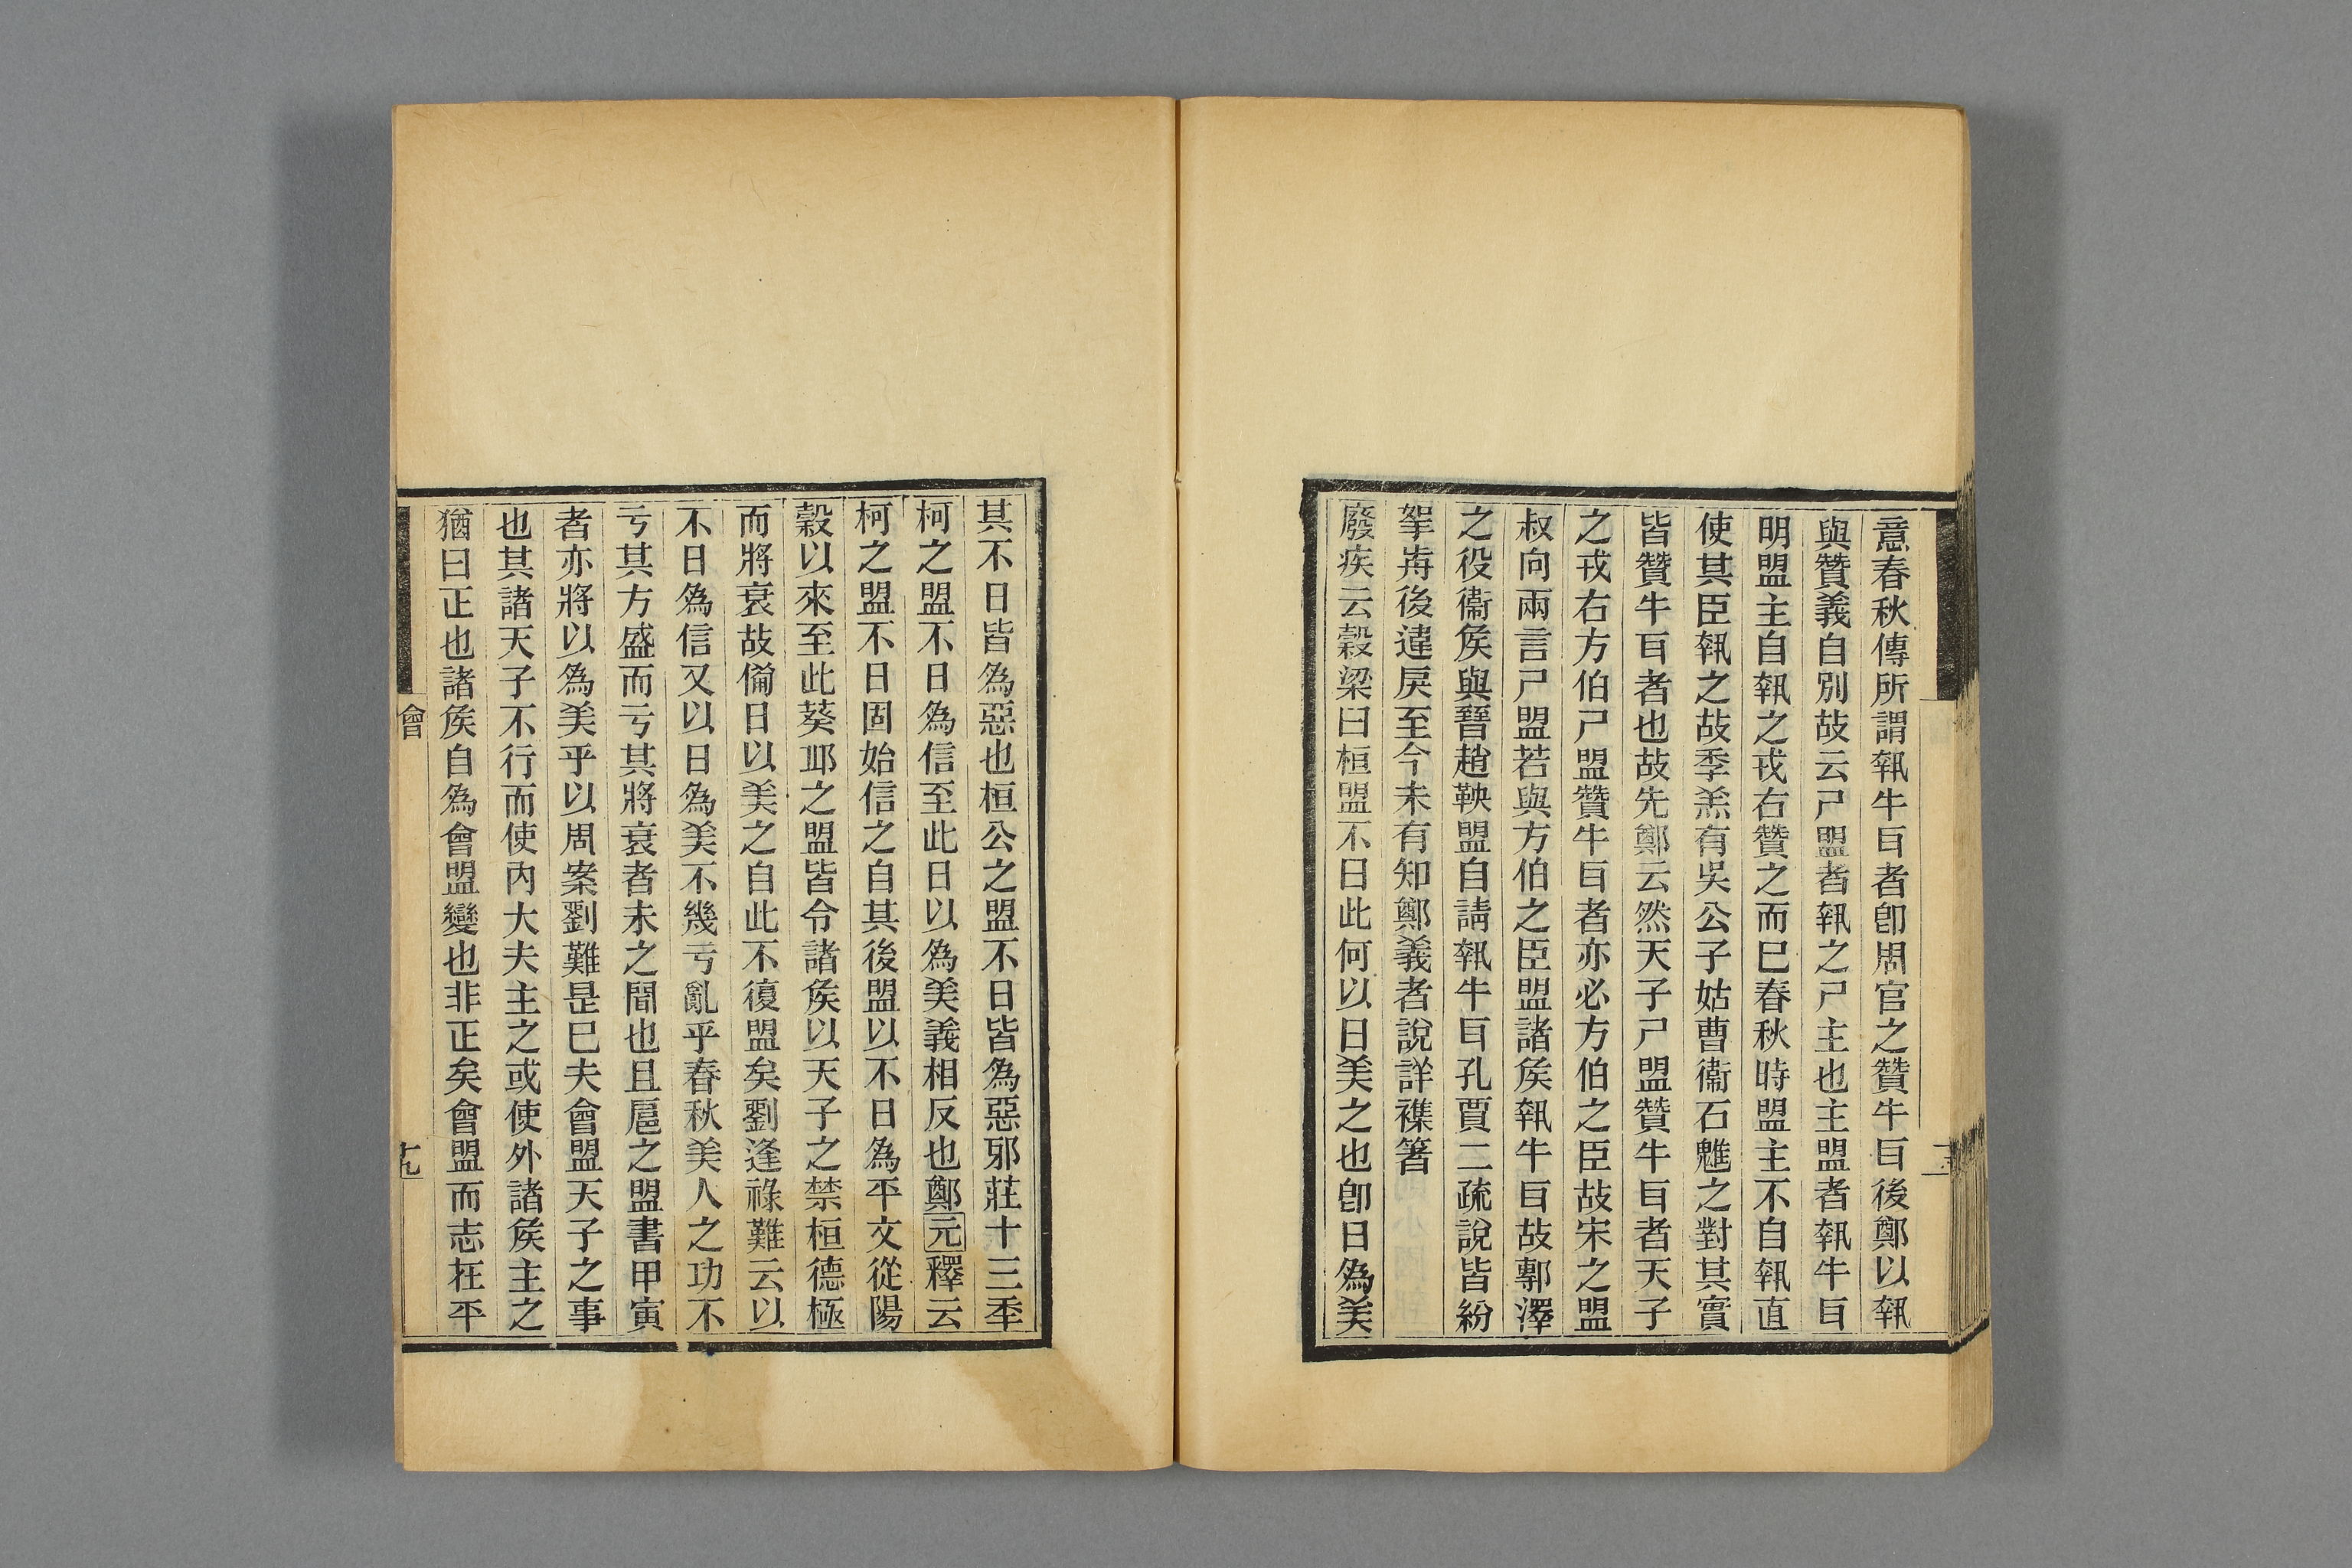 意春秋傳所謂執牛耳者卽周官之贊牛耳後鄭以執
與贊義自別故云尸盟者執之尸主也主盟者執牛耳
明盟主自執之戎右贊之而巳春秋時盟主不自執直
使其臣執之故季羔有吳公子姑曹衞石魋之對其實
皆贊牛耳者也故先鄭云然天子尸盟贊牛耳者天子
之戎右方伯尸盟贊牛耳者亦必方伯之臣故宋之盟
叔向兩言尸盟若與方伯之臣盟諸矦執牛耳故鄟澤
之役衞矦與晉趙鞅盟自請執牛耳孔賈二疏說皆紛
挐歬後違戾至今未有知鄭義者說詳襍箸
廢疾云穀梁曰桓盟不日此何以日美之也卽日爲美
其不日皆爲惡也桓公之盟不日皆爲惡邪莊十三秊
柯之盟不日爲信至此日以爲美義相反也鄭元釋云
柯之盟不日固始信之自其後盟以不日爲平文從陽
穀以來至此葵邱之盟皆令諸矦以天子之禁桓德極
而將衰故備日以美之自此不復盟矣劉逢祿難云以
不日爲信又以日爲美不幾亏亂乎春秋美人之功不
亏其方盛而亏其將衰者未之聞也且扈之盟書甲寅
者亦將以爲美乎以周案劉難是巳夫會盟天子之事
也其諸天子不行而使內大夫主之或使外諸矦主之
猶曰正也諸矦自爲會盟變也非正矣會盟而志在平
會
十九